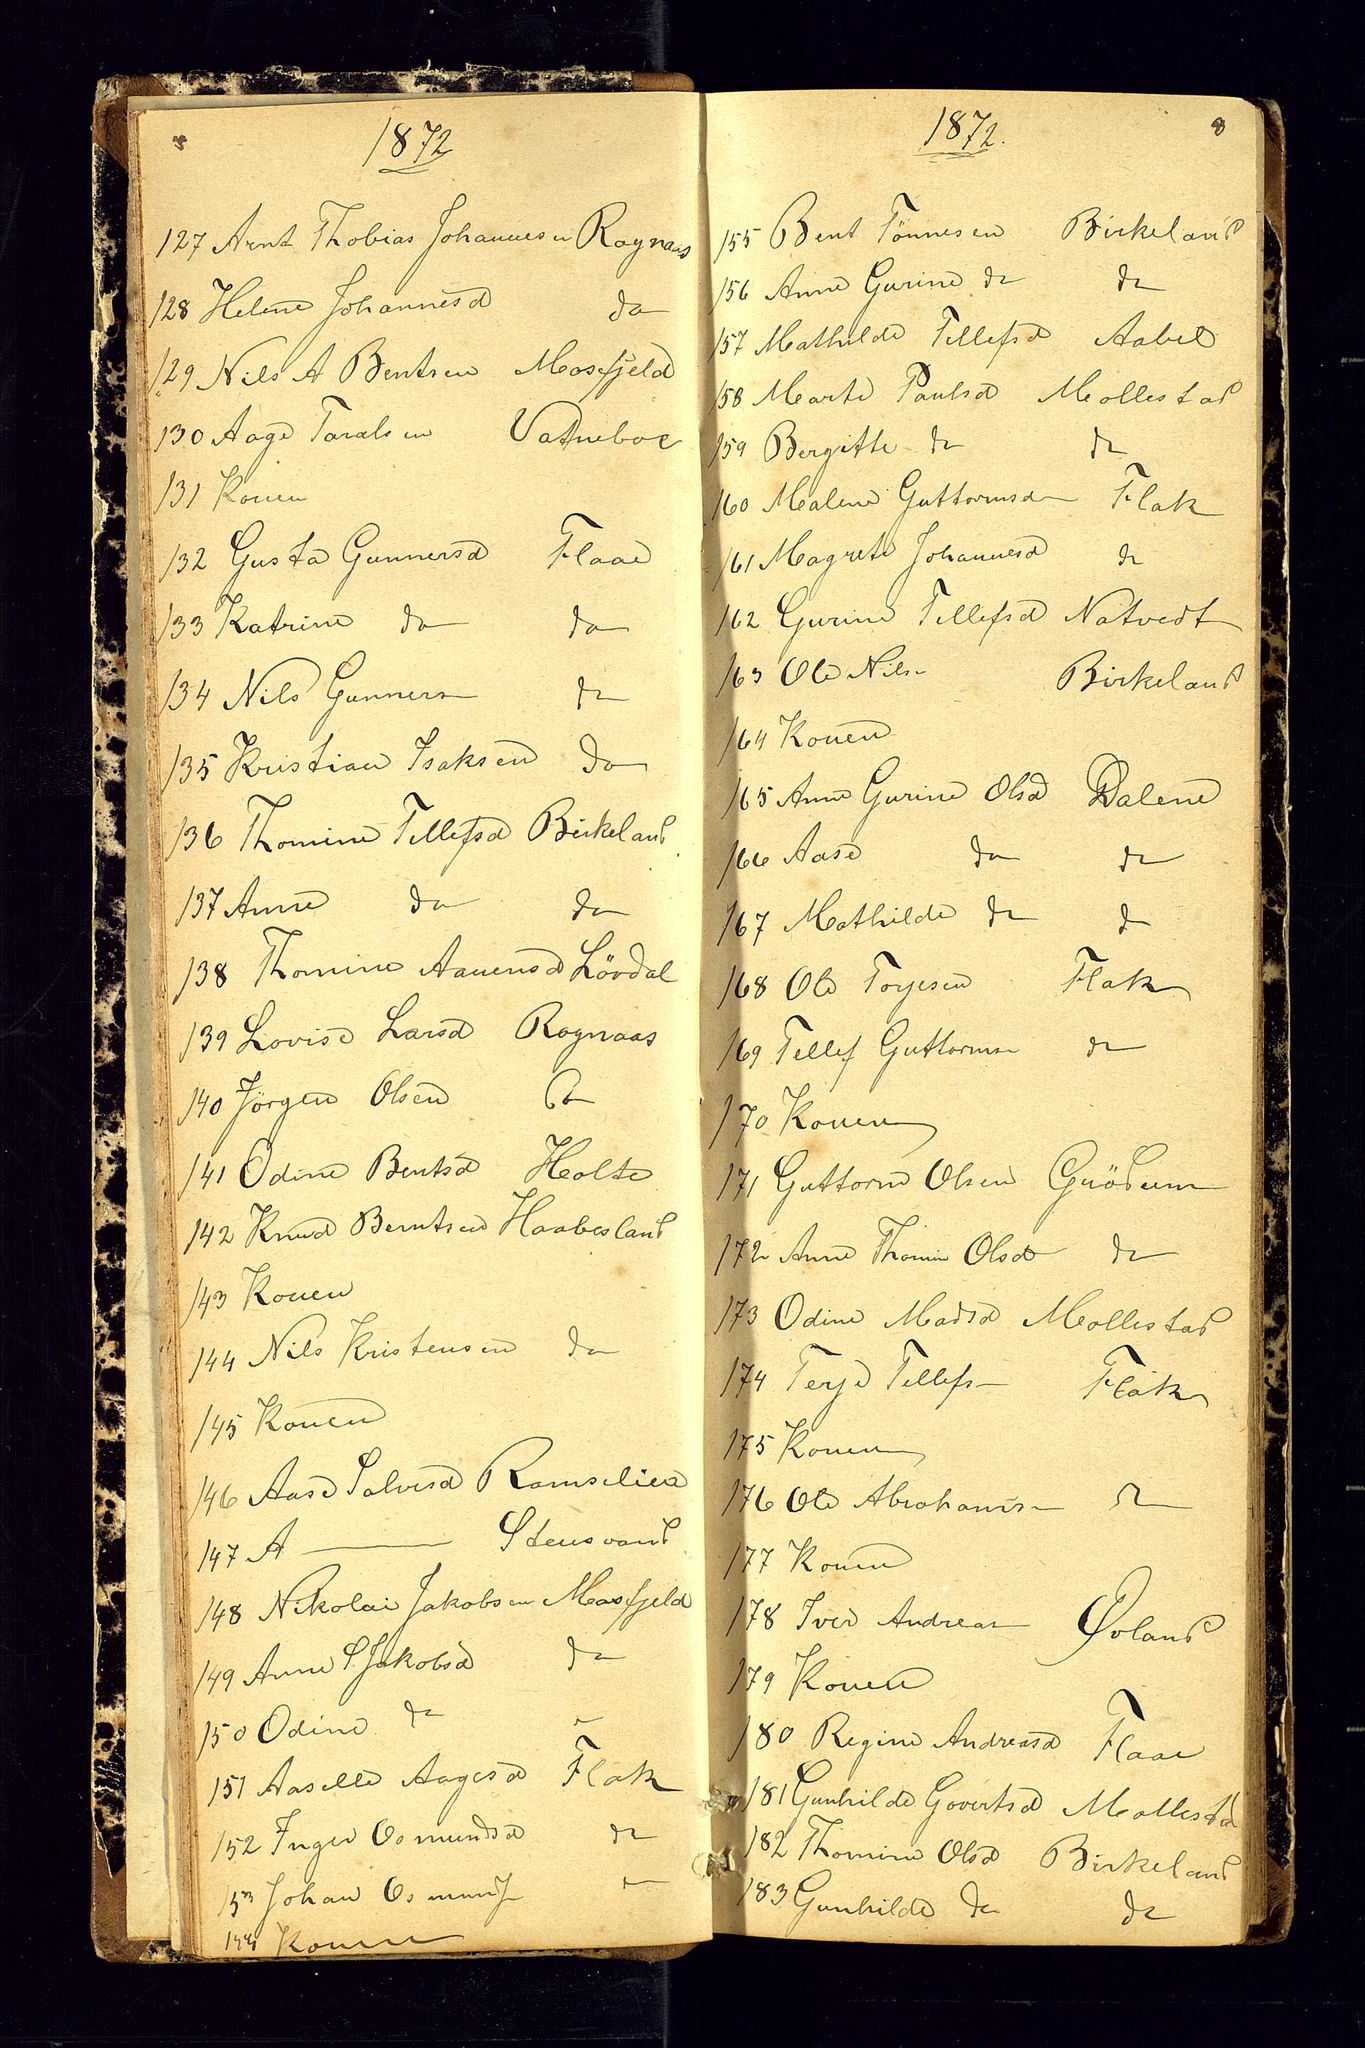 1872
127 Arnt Thobias Johannesen Rognaas
128 Helene Johannesd do
129 Nils A Bentsen Mosfjeld
130 Aage Taralsen Vatneboe
131 Konen
132 Gusta Gunnersd Flaae
133 Katrine do do
134 Nils Gunners do
135 Kristian Isaksen do
136 Thomine Tellefsd Birkeland
137 Anne do do
138 Thomine Aanensd Lövdal
139 Lovise Larsd Rognaas
140 Jörgen Olsen do
141 Odine Bentsd Holte
142 Knud Berntsen Haabesland
143 Konen
144 Nils Kristensen do
145 Konen
146 Aase Salvesd
147 A —— Stensvand
148 Nikolai Jakobsen Mosfjeld
149 Anne S. Jakobsd do
150 Odine do
151 Aaselle Aagesd Flak
152 Inger Osmundsd do
153 Johan
154 Konen
8
1872.
155 Bent Tönnesen Birkeland
156 Anne Gurine do do
157 Mathilde Tellefsd Aabel
158 Marte Paulsd Mollestad
159 Bergitte do do
160 Malene Guttormsd Flak
161 Magrete Johannesd do
162 Gurine Tellefsd Natvedt
163 Ole Nils Birkeland
164 Konen
165 Anne Gurine Olsd Dalene
166 Aase do do
167 Mathilde do do
168 Ole Torjesen Flak
169 Tellef Guttorms do
170 Konen
171 Guttorm Olsen
172 Anne Thomin Olsd do
173 Odine Madsd Mollestad
174 Terje Tellefs Flak
175 Konen
176 Ole Abrahams do
177 Konen
178 Iver Andreas Øvland
179 Konen
180 Regine Andreasd Flaae
181 Gunhilde Govertsd Mollestd
182 Thomine Olsd Birkeland
183 Gunhilde do do